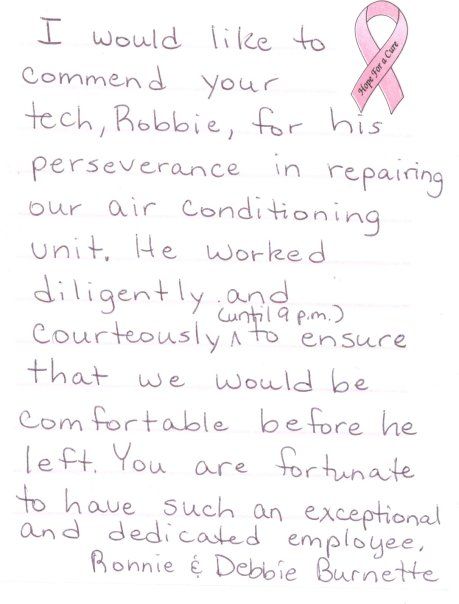 I would like to
Hope For a Cure
commend your
tech, Robbie, for his
perseverance in repairing
our air conditioning
unit. He worked
diligently and
(until 9 p.m.)
courteously ^ to ensure
that we would be
comfortable before he
left. You are fortunate
to have such an exceptional
and dedicated employee.
Ronnie & Debbie Burnette